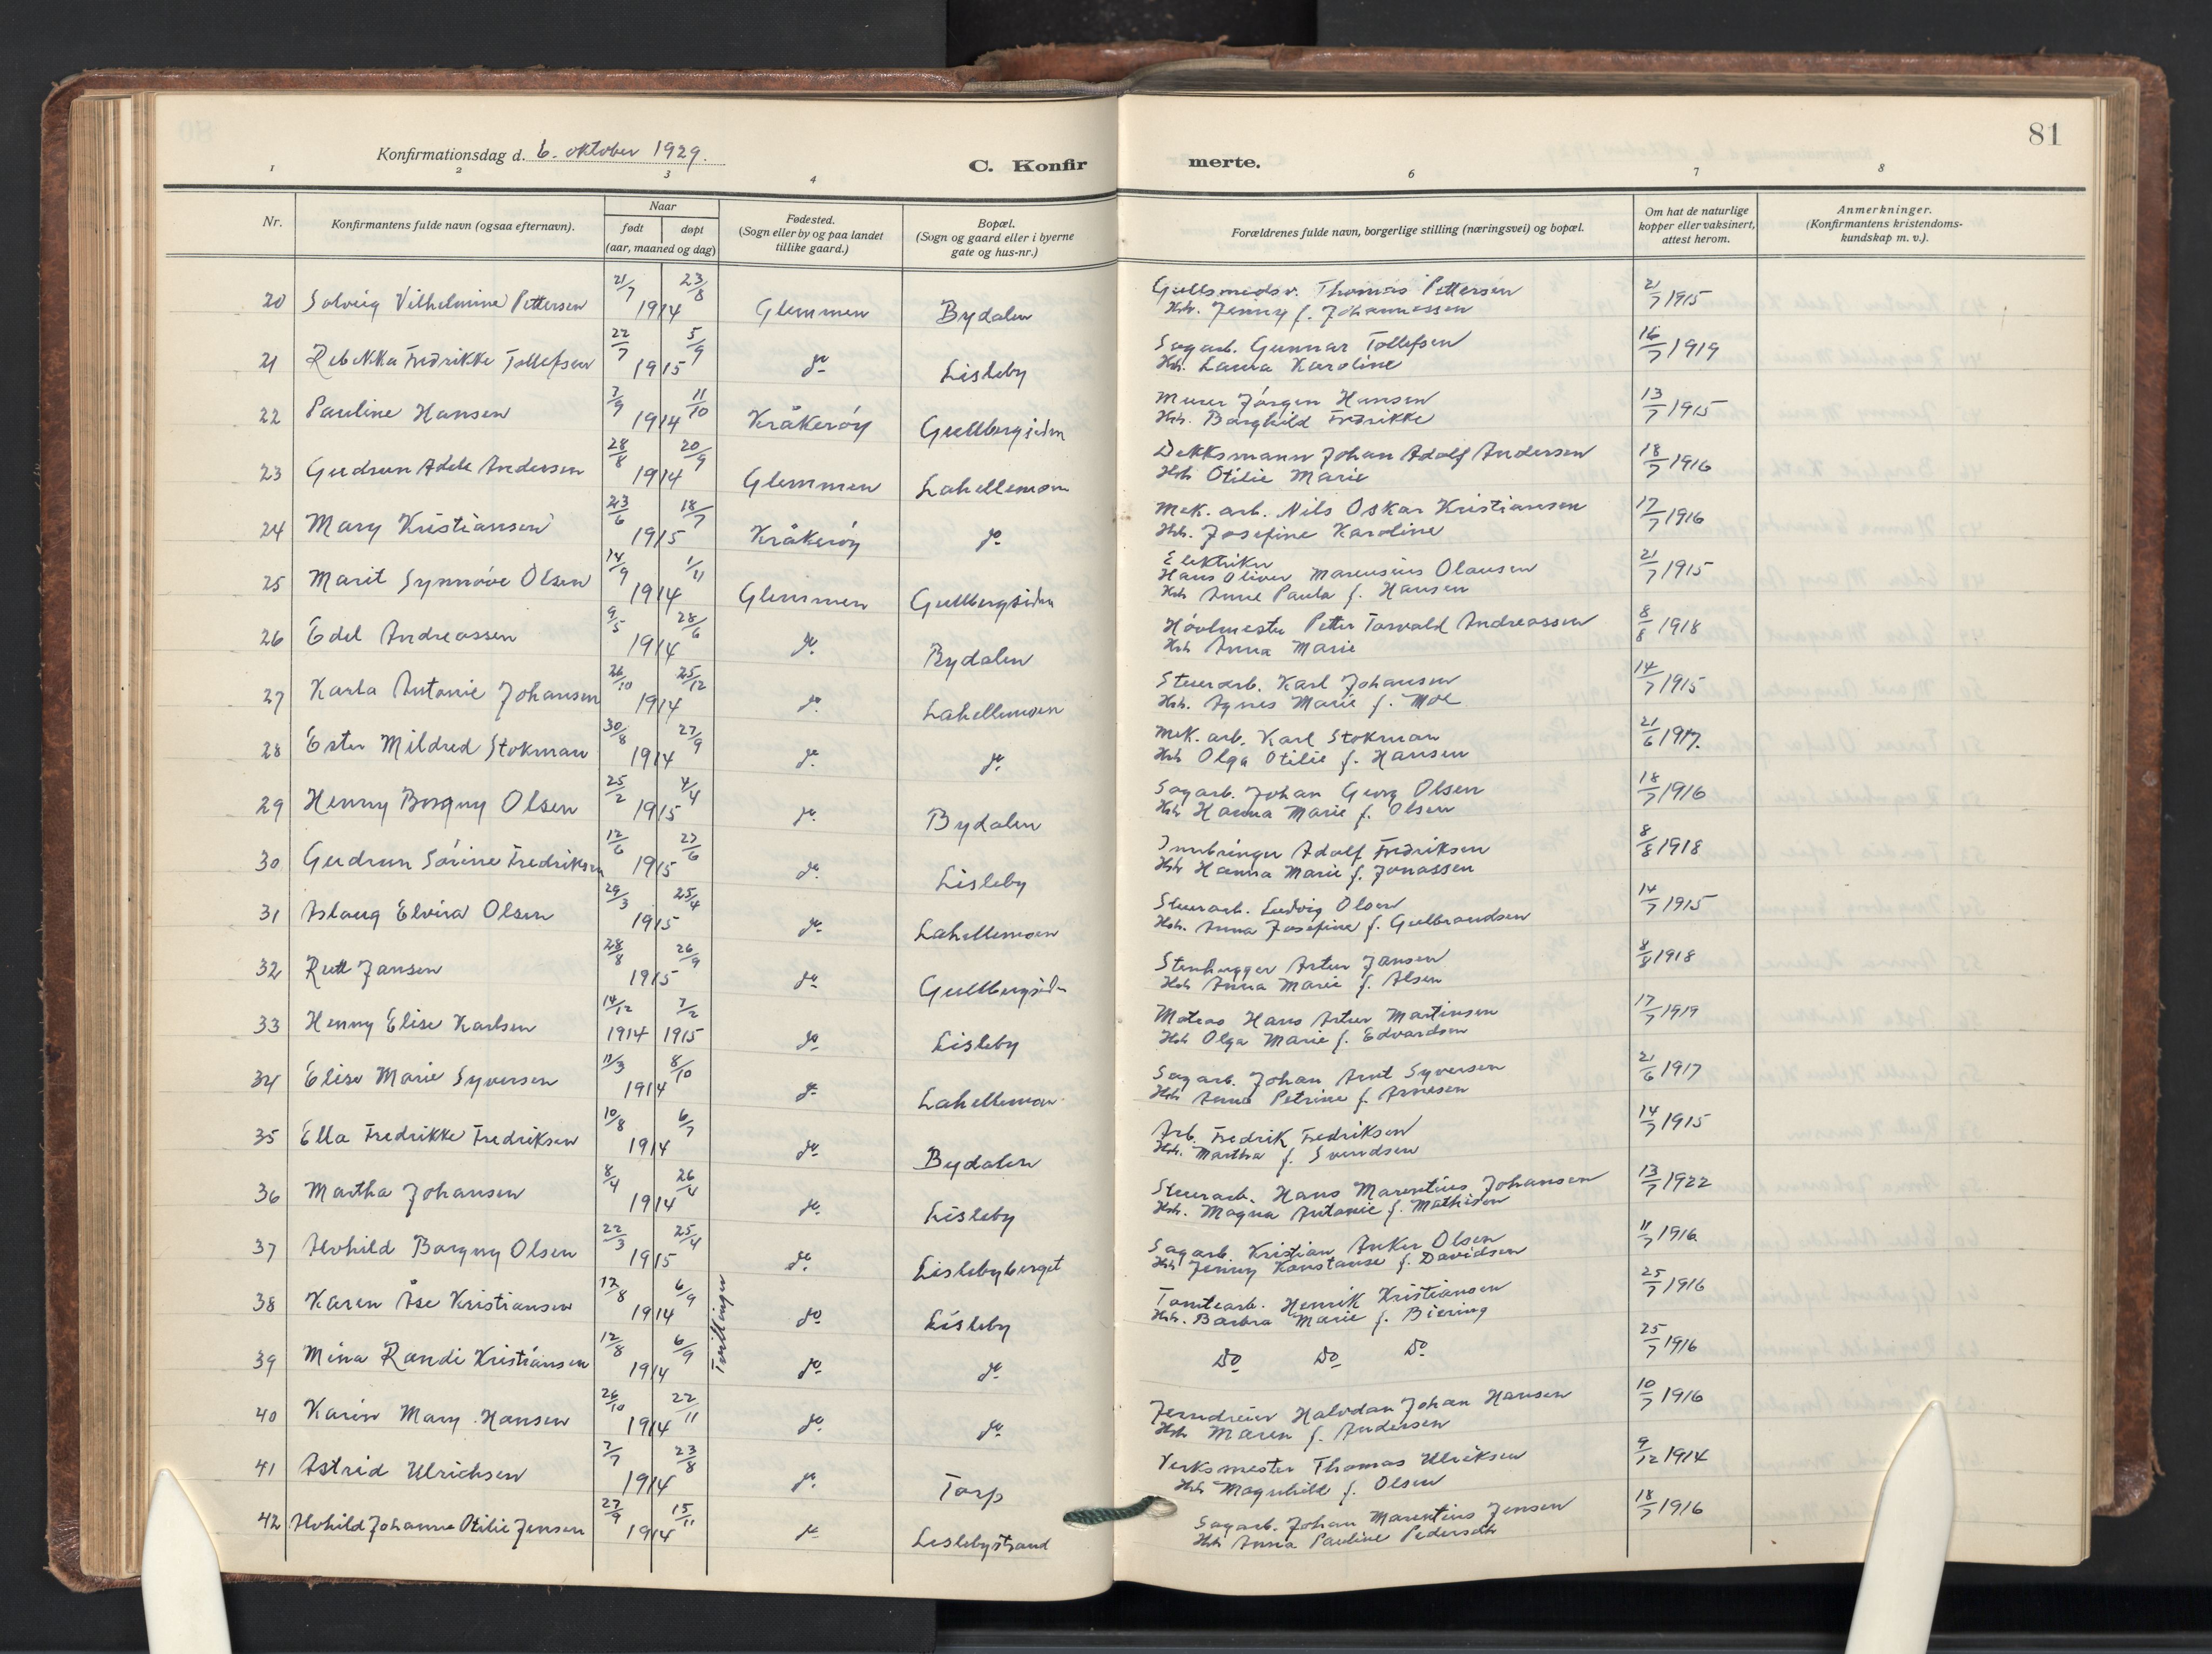 81
Konfirmationsdag d. 6. oktober 1929.
C. Konfirmerte.
1 2 3 4 6 7 8
Nr.
Konfirmantens fulde navn (ogsaa efternavn).
Naar
født døpt
(aar, maaned og dag)
Fødested.
(Sogn eller by og paa landet
tillike gaard.)
Bopæl.
(Sogn og gaard eller i byerne
gate og hus-nr.)
Forældrenes fulde navn, borgerlige stilling (næringsvei) og bopæl.
Om hat de naturlige
kopper eller vaksinert,
attest herom.
Anmerkninger.
(Konfirmantens kristendoms-
kundskap m. v.).
20 Solveig Vilhelmine Pettersen 21/7 23/8 1914 Glemmen Bydalen Gullsmedsv. Thomas Pettersen 21/7 1915
Hstr. Jenny f. Johannessen
21 Rebekka Fredrikke Tollefsen 22/7 5/9 1915 do Lisleby Sagarb. Gunnar Tollefsen 16/7 1919
Hstr. Laura Karoline
22 Pauline Hansen 7/9 11/10 1914 Kråkerøy Gullbergsiden Murer Jørgen Hansen 13/7 1915
Hstr. Borghild Fredrikke
23 Gudrun Adele Andersen 28/8 20/9 1914 Glemmen Lahellemoen Dekksmann Johan Adolf Andersen 18/7 1916
Hstr Otilie Marie
24 Mary Kristiansen 23/6 18/7 1915 Kråkerøy do Mek. arb. Nils Oskar Kristiansen 17/7 1916
Hstr. Josefine Karoline
25 Marit Synnøve Olsen 14/9 1/11 1914 Glemmen Gullbergsiden Elektriker
Hans Oliver Marensius Olausen 21/7 1915
Hstr Anne Paula f. Hansen
26 Edel Andreassen 9/5 28/6 1914 do Bydalen Høvlmester Petter Torvald Andreassen 8/8 1918
Hstr Anna Marie
27 Karla Antonie Johansen 26/10 25/12 1914 do Lahellemoen Stuerarb. Karl Johansen 14/7 1915
Hstr. Agnes Marie f. Moe
28 Ester Mildred Stokman 30/8 27/9 1914 do do Mek. arb. Karl Stokman 21/6 1917.
Hstr Olga Otilie f. Hansen
29 Henny Borgny Olsen 25/2 4/4 1915 do Bydalen Sagarb. Johan Georg Olsen 18/7 1916
Hstr Hanna Marie f. Olsen
30 Gudrun Sørine Fredriksen 12/6 27/6 1915 do Lisleby Innbringer Adolf Fredriksen 8/8 1918
Hstr Hanna Marie f. Jonassen
31 Aslaug Elvira Olsen 29/3 25/4 1915 do Lahellemoen Stuerarb. Ludvig Olsen 14/7 1915
Hstr. Anna Josefine f. Gulbrandsen
32 Rutt Jansen 28/8 26/9 1915 do Gullbergsiden Stenhugger Artur Jansen 8/8 1918
Hstr Anna Marie f. Alsen
33 Henny Elise Karlsen 14/12 1914 7/2 1915 do Lisleby Matros Hans Artur Martinsen 17/7 1919
Hstr Olga Marie f. Edvardsen
34 Elise Marie Syversen 13/3 8/10 1914 do Lahellemoen Sagarb. Johan Arnt Syversen 21/6 1917
Hstr Anna Petrine f. Arnesen
35 Ella Fredrikke Fredriksen 10/8 6/7 1914 do Bydalen Arb. Fredrik Fredriksen 14/7 1915
Hstr. Martha f. Svendsen
36 Martha Johansen 8/4 26/4 1914 do Lisleby Stuerarb. Hans Marentius Johansen 13/7 1922
Hstr. Magna Antonie f. Mathisen
37 Alvhild Borgny Olsen 22/3 25/4 1915 do Lislebyberget Sagarb. Kristian Anker Olsen 11/7 1916
Hstr Jenny Konstanse f. Davidsen
38 Karen Åse Kristiansen 12/8 6/9 1914 do Lisleby Tomtearb. Henrik Kristiansen 25/7 1916
Hstr. Barbra Marie f. Biering
Tvillinger
39 Mina Randi Kristiansen 12/8 6/9 1914 do do Do Do Do 25/7 1916
40 Karin Mary Hansen 26/10 22/11 1914 do do Jerndreier Halvdan Johan Hansen 10/7 1916
Hstr Maren f. Andersen
41 Astrid Ulrichsen 7/7 23/8 1914 do Torp Verksmester Thomas Ulriksen 9/12 1914
Hstr Magnhild f. Olsen
42 Alvhild Johanne Otilie Jensen 27/9 15/11 1914 do Lislebystrand Sagarb. Johan Marentius Jensen 18/7 1916
Hstr Anna Pauline Pedersdtr